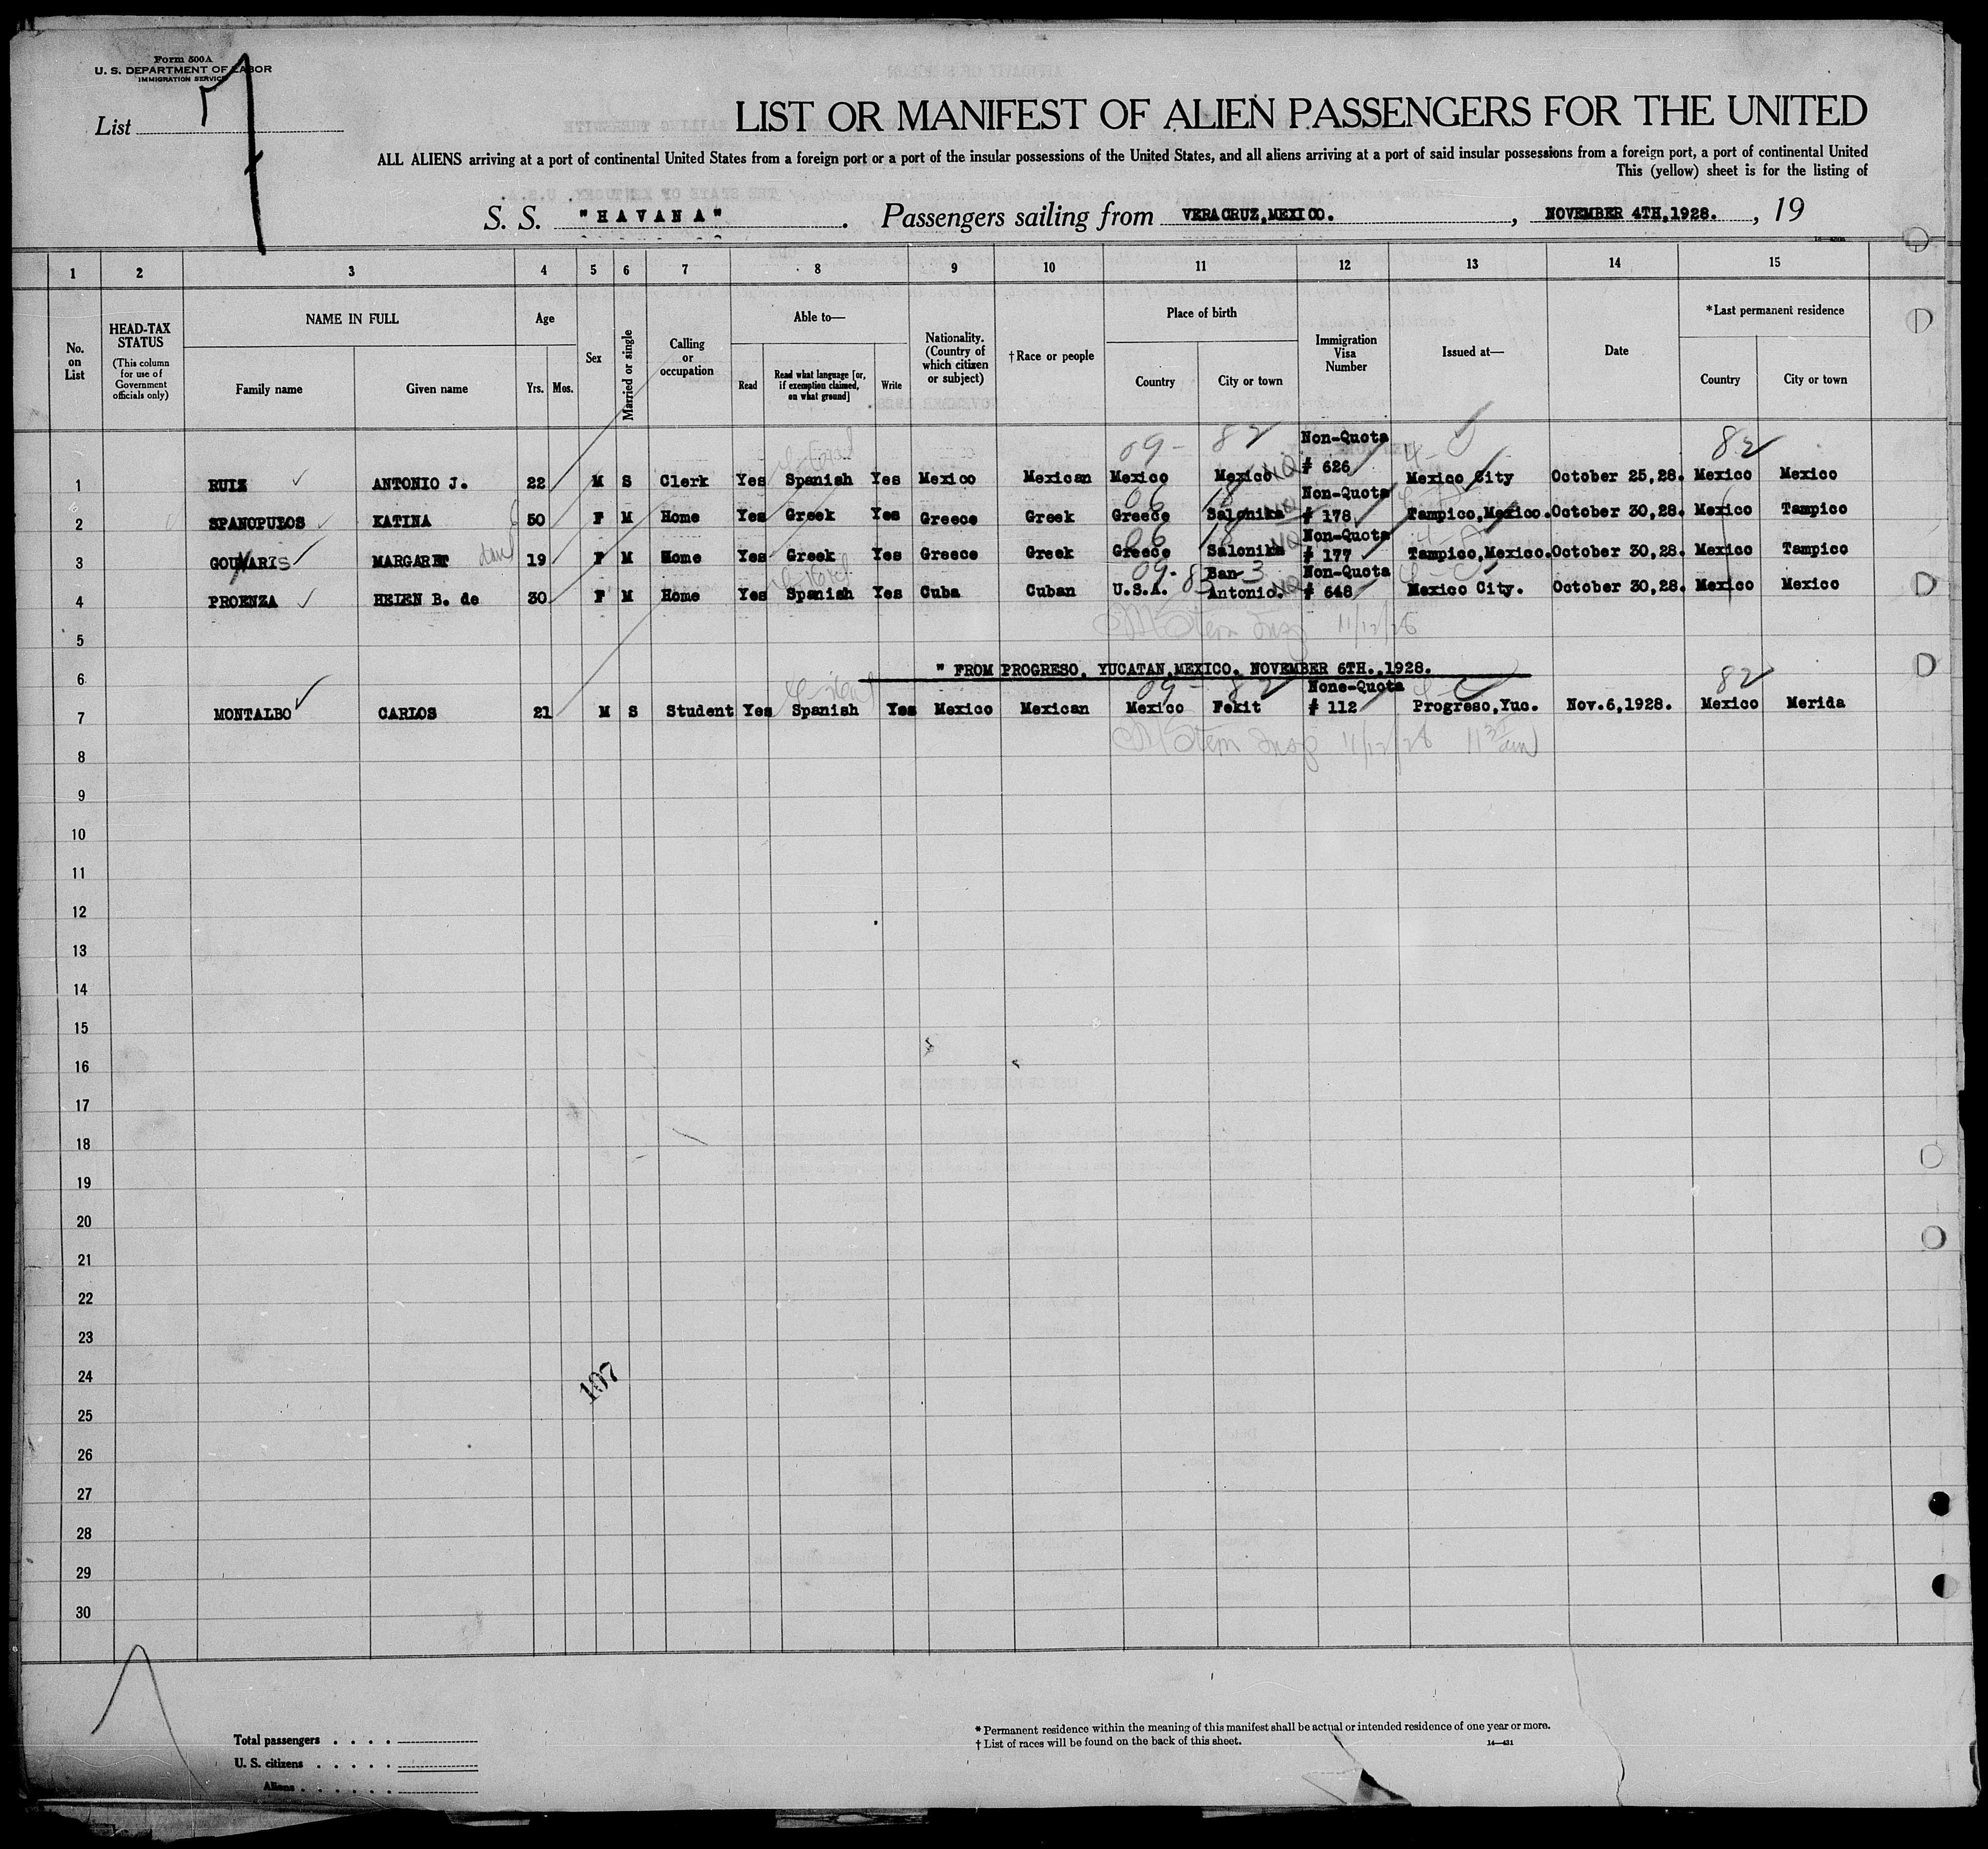 Form 500A
U. S. DEPARTMENT OF LABOR
IMMIGRATION SERVICE
List
LIST OR MANIFEST OF ALIEN PASSENGERS FOR THE UNITED
ALL ALIENS arriving at a port of continental United States from a foreign port or a port of the insular possessions of the United States, and all aliens arriving at a port of said insular possessions from a foreign port, a port of continental United
This (yellow) sheet is for the listing of
S. S. "HAVANA". Passengers sailing from VERACRUZ, MEXICO., NOVEMBER 4TH, 1928., 19
1 2 3 4 5 6 7 8 9 10 11 12 13 14 15
No. on List
HEAD-TAX STATUS (This column for use of Government officials only)
NAME IN FULL Family name Given name
Age Yrs. Mos.
Sex
Married or single
Calling or occupation
Able to— Read Read what language [or, if exemption claimed, on what ground] Write
Nationality. (Country of which citizen or subject)
†Race or people
Place of birth Country City or town
Immigration Visa Number
Issued at—
Date
*Last permanent residence Country City or town
09- 82 Non-Quota 82
1 RUIZ ANTONIO J. 22 M S Clerk Yes Spanish Yes Mexico Mexican Mexico Mexico NQ # 626 Mexico City October 25,28. Mexico Mexico
06 18 Non-Quota
2 SPANOPULOS KATINA 50 F M Home Yes Greek Yes Greece Greek Greece Salonika NQ # 178 Tampico,Mexico. October 30,28. Mexico Tampico
06 18 Non-Quota
3 GOUMARIS MARGARET 19 F M Home Yes Greek Yes Greece Greek Greece Salonika NQ # 177 Tampico,Mexico. October 30,28. Mexico Tampico
09- 82 San 3 Non-Quota
4 PROENZA HELEN B. de 30 F M Home Yes Spanish Yes Cuba Cuban U.S.A. Antonio. NQ # 648 Mexico City. October 30,28. Mexico Mexico
Insp 11/12/28
5
" FROM PROGRESO, YUCATAN, MEXICO, NOVEMBER 6TH., 1928.
6
09- 82 None-Quota 82
7 MONTALBO CARLOS 21 M S Student Yes Spanish Yes Mexico Mexican Mexico Fekit # 112 Progreso,Yuc. Nov.6,1928. Mexico Merida
Insp 11/12/28
8
9
10
11
12
13
14
15
16
17
18
19
20
21
22
23
24
107
25
26
27
28
29
30
* Permanent residence within the meaning of this manifest shall be actual or intended residence of one year or more.
† List of races will be found on the back of this sheet.
14—431
Total passengers
U. S. citizens
Aliens